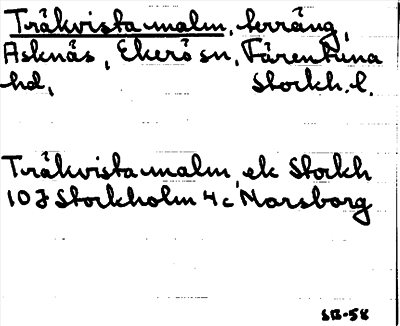 Träkvista malm, terräng,
Asknäs, Ekerö sn, Färentuna
hd, Stockh. l.
Träkvista malm, ek Stockh
10 J Stockholm 4 c Norsborg
SB-58